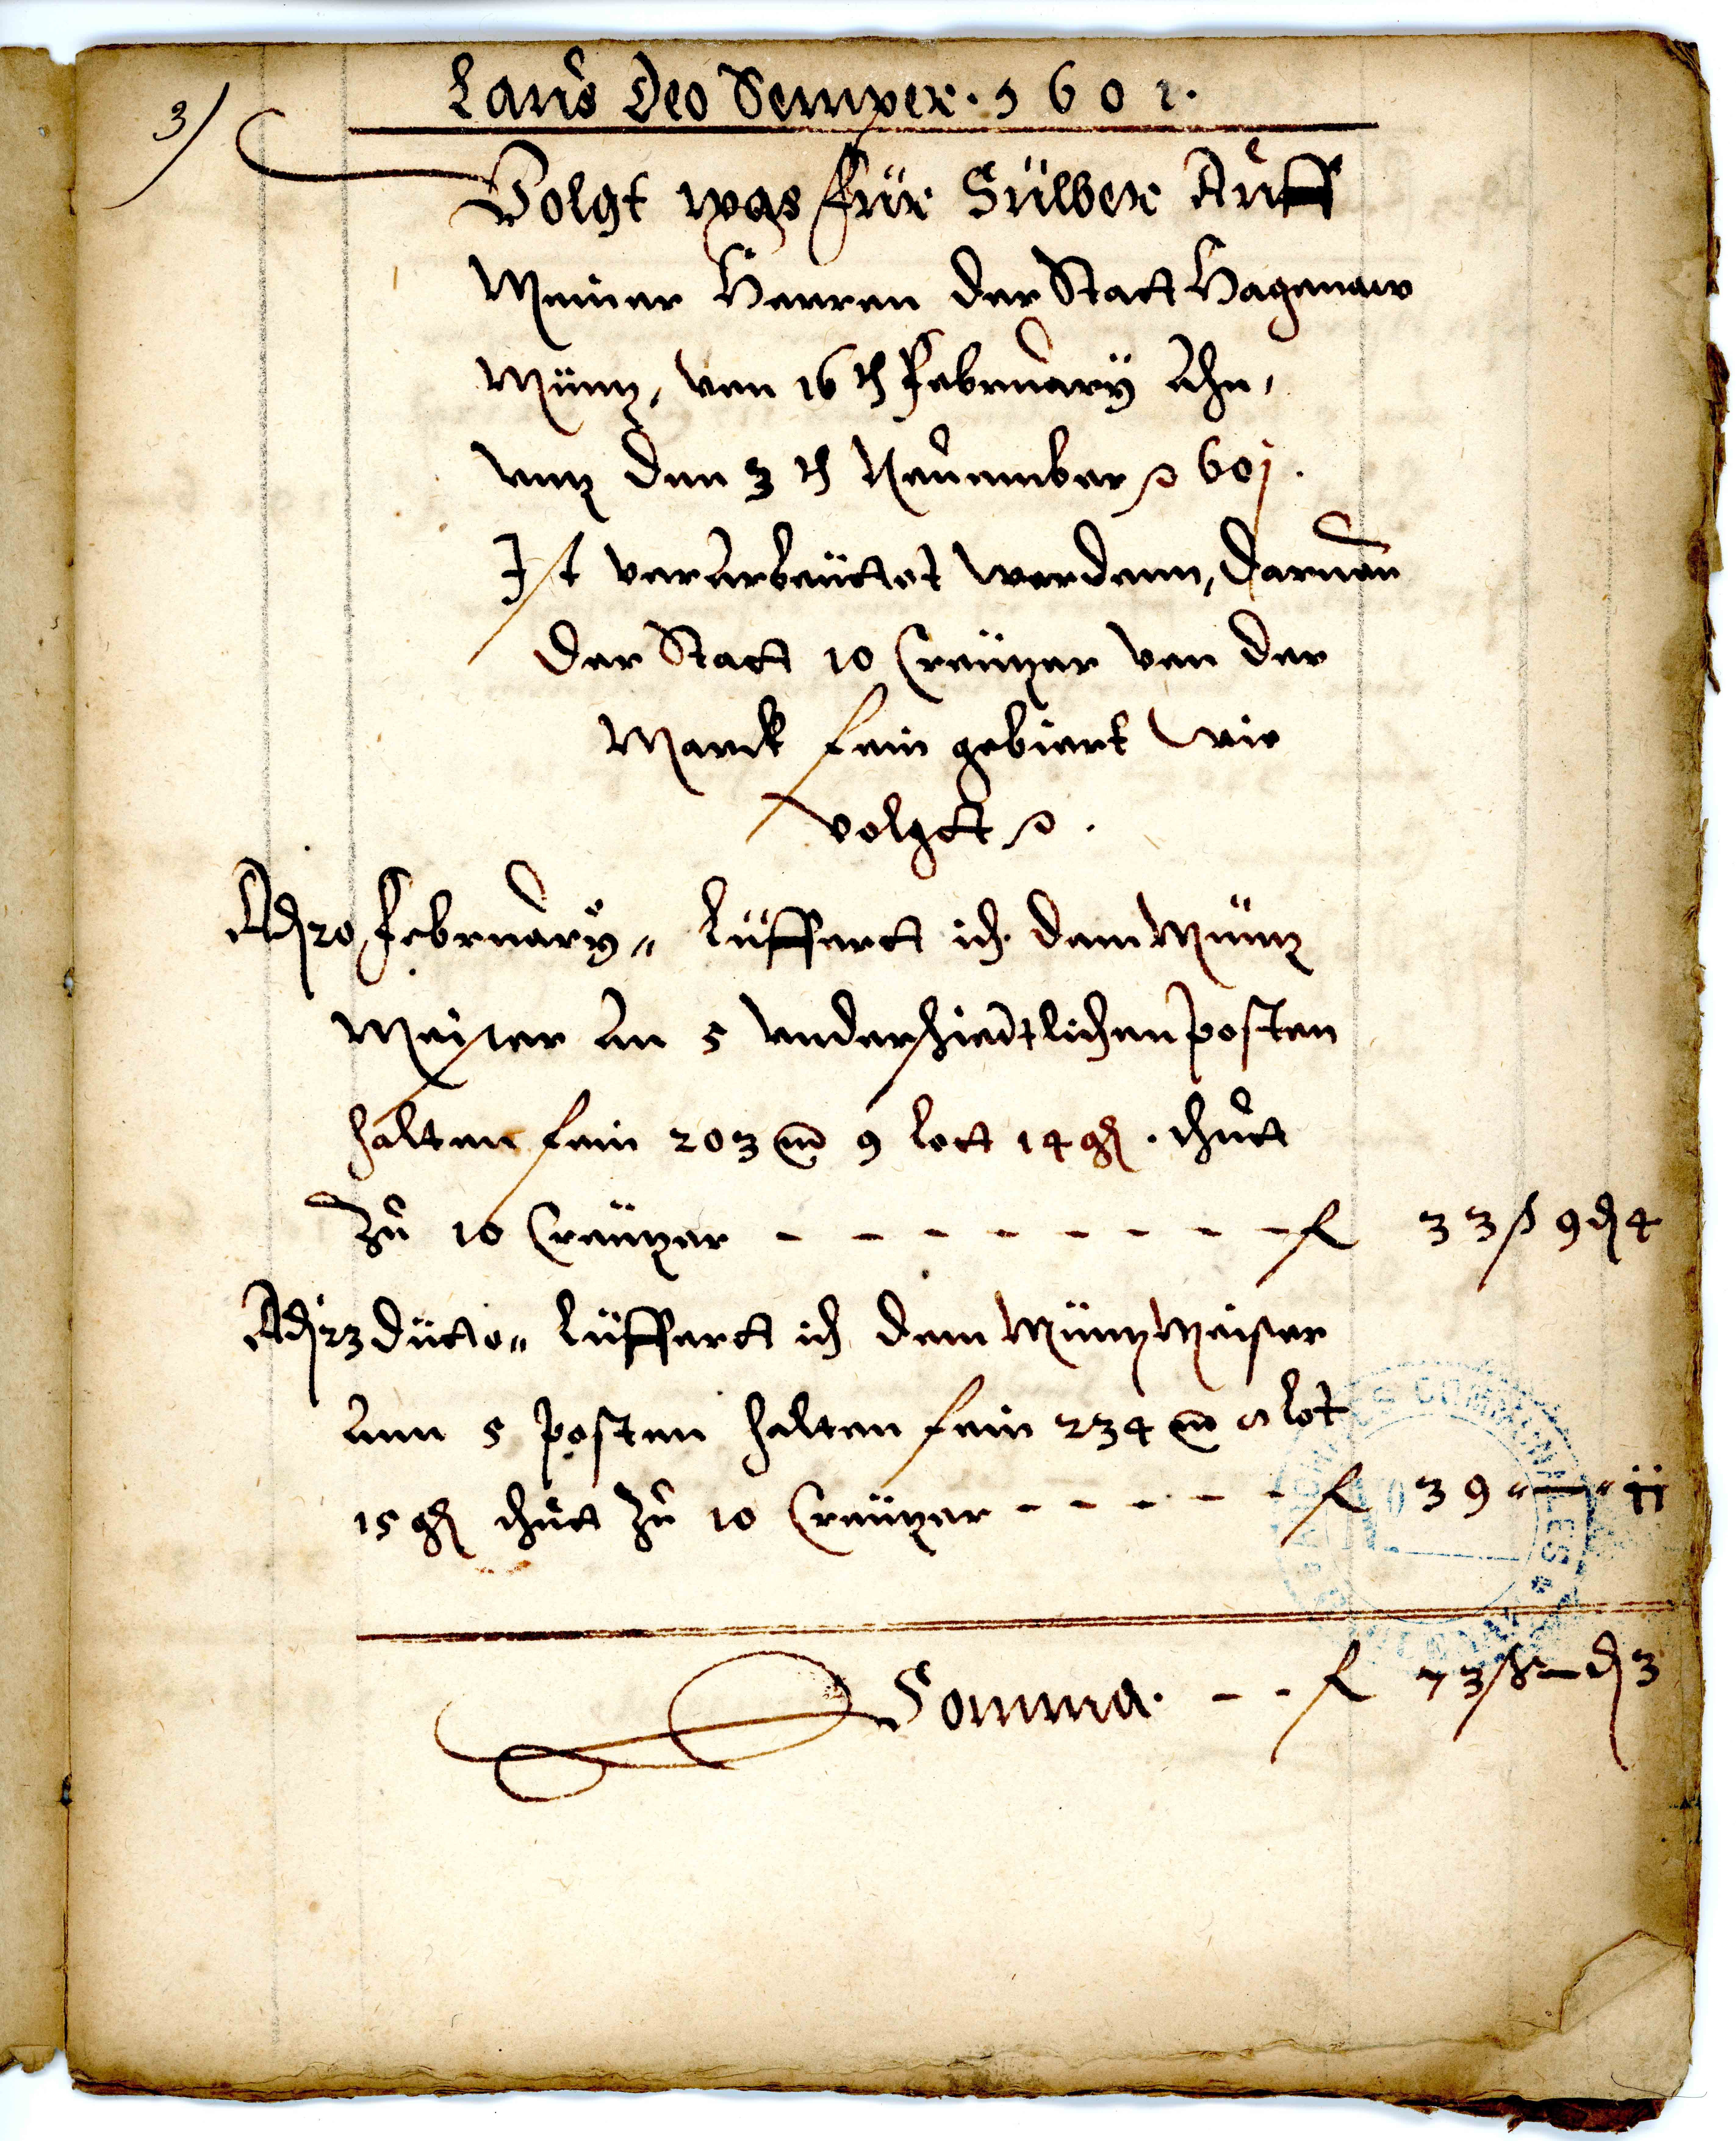 3)
Laus Deo Semper. 1601.
Volgt was für Sülber Auff
Meiner Herren der Statt Hagenaw
Müntz, von 16 th February Ahn,
untz den 3 th November 601.
Ist verarbeüttet worden, daruon
der Statt 10 Creützer von der
Marck fein gebiert wie
volgtt
Adj 20 February„ lüffertt ich dem Müntz
Meister An 5 underschiedtlichen posten
halten fein 203 m 9 lott 14 gr. thutt
Zu 10 Creützer - - - - - - - - - fl 33 ß 9 d 4
Adj 23 dütto„ lüffertt ich dem Müntz Meister
Ann 5 posten halten fein 234 m lot
15 gr thutt Zu 10 Creützer - - - - - - fl 39 „—„ jj
Somma. - - fl 73 ß — d 3